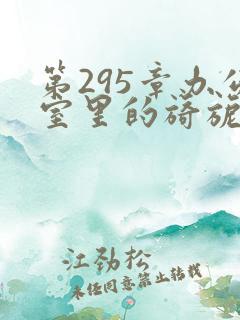 第295章办公
室里的旖旎
江劲松
未经同意禁止转载